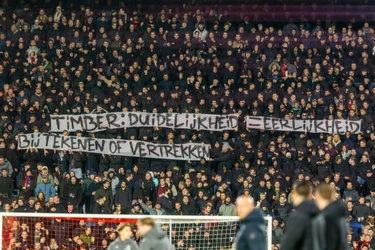 TIMBER: DUIDELIJKHEID = EERLIJKHEID
BIJTEKENEN OF VERTREKKEN